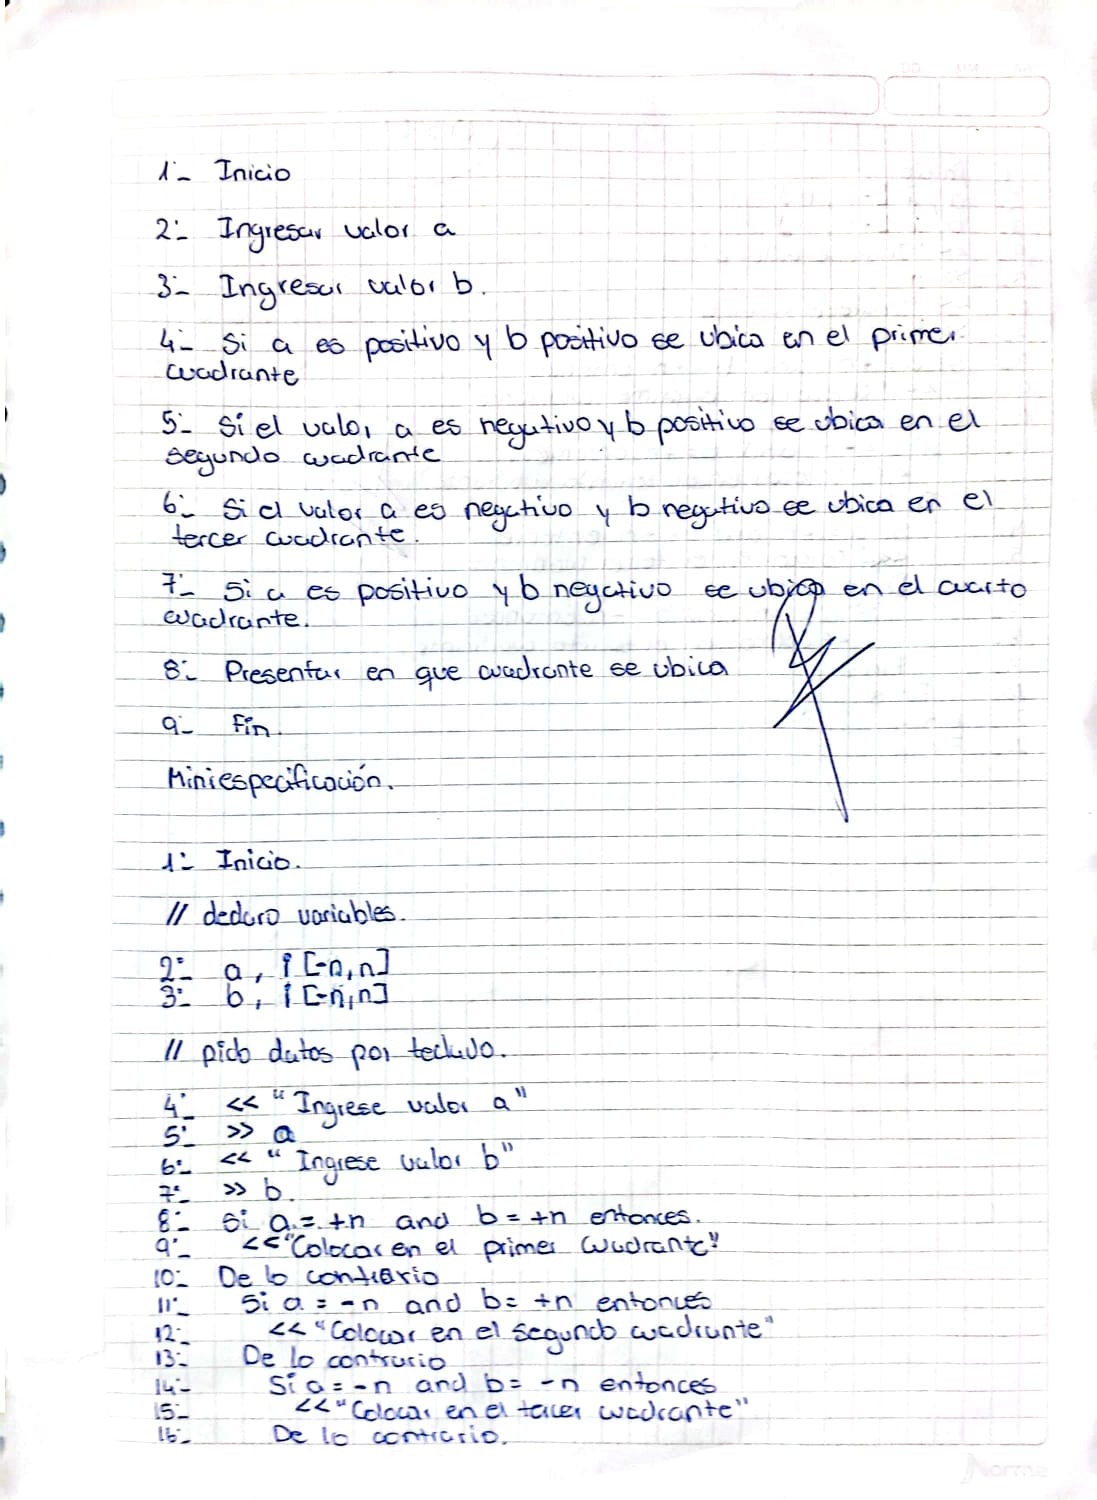 1._ Inicio
2._ Ingresar valor a
3._ Ingresar valor b.
4._ Si a es positivo y b positivo se ubica en el primer
cuadrante
5._ Si el valor a es negativo y b positivo se ubica en el
segundo cuadrante
6._ Si el valor a es negativo y b negativo se ubica en el
tercer cuadrante.
7._ Si a es positivo y b negativo se ubica en el cuarto
cuadrante.
8._ Presentar en que cuadrante se ubica
9._ Fin.
Miniespecificación.
1._ Inicio.
// declaro variables.
2._ a, i [-n,n]
3._ b, i [-n,n]
// pido datos por teclado.
4._ << "Ingrese valor a"
5._ >> a
6._ << "Ingrese valor b"
7._ >> b.
8._ Si a = +n and b = +n entonces.
9._ << "Colocar en el primer cuadrante"
10._ De lo contrario
11._ Si a = -n and b = +n entonces
12._ << "Colocar en el segundo cuadrante"
13._ De lo contrario
14._ Si a = -n and b = -n entonces
15._ << "Colocar en el tercer cuadrante"
16._ De lo contrario.
Norma